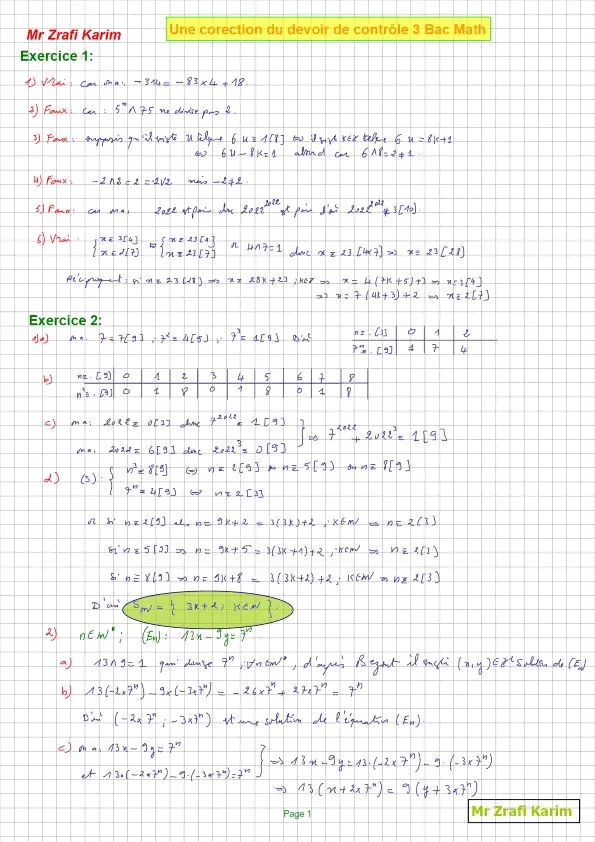 Mr Zrafi Karim
Une corection du devoir de contrôle 3 Bac Math
Exercice 1:
1) Vrai : car on a : -314 = -83×4 + 18.
2) Faux : car : 5ⁿ ∧ 75 ne divise pas 2.
3) Faux : supposons qu'il existe u telque 6u ≡ 1[8] ⇔ il existe K∈Z telque 6u = 8K+1
⇔ 6u - 8K = 1 absurd car 6∧8 = 2 ≠ 1.
4) Faux : -2∧2 = 2 = 2∨2 mais -2 ≠ 2.
5) Faux : car on a 2022 est paire donc 2022^2022 est paire d'où 2022^2022 ≢ 3[10].
6) Vrai : { x ≡ 3[4] x ≡ 2[7] ⇔ { x ≡ 23[4] x ≡ 23[7] or 4∧7=1 donc x ≡ 23[4×7] ⇒ x ≡ 23[28]
Réciproquement : si x ≡ 23[28] ⇒ x = 28K+23 ; K∈Z ⇒ x = 4(7K+5)+3 ⇒ x ≡ 3[4]
⇒ x = 7(4K+3)+2 ⇒ x ≡ 2[7]
Exercice 2:
1)a) on a : 7 ≡ 7[9] ; 7² ≡ 4[9] ; 7³ ≡ 1[9] D'où
n ≡ . [3] 0 1 2
7ⁿ ≡ . [9] 1 7 4
b) n ≡ . [9] 0 1 2 3 4 5 6 7 8
n³ ≡ . [9] 0 1 8 0 1 8 0 1 8
c) on a : 2022 ≡ 0[3] donc 7^2022 ≡ 1[9]
on a : 2022 ≡ 6[9] donc 2022³ ≡ 0[9] } ⇒ 7^2022 + 2022³ ≡ 1[9]
d) (S) : { n³ ≡ 8[9] ⇔ n ≡ 2[9] ou n ≡ 5[9] ou n ≡ 8[9]
7ⁿ ≡ 4[9] ⇔ n ≡ 2[3]
or si n ≡ 2[9] alors n = 9K+2 = 3(3K)+2 ; K∈IN ⇒ n ≡ 2(3)
si n ≡ 5[9] ⇒ n = 9K+5 = 3(3K+1)+2 ; K∈IN ⇒ n ≡ 2(3)
si n ≡ 8[9] ⇒ n = 9K+8 = 3(3K+2)+2 ; K∈IN ⇒ n ≡ 2[3]
D'où S_IN = { 3K+2 ; K∈IN }.
2) n∈IN* ; (En) : 13x - 9y = 7ⁿ
a) 13∧9 = 1 qui divise 7ⁿ, ∀n∈IN*, d'après Bezout il existe (x,y)∈Z² solution de (En)
b) 13(-2×7ⁿ) - 9×(-3×7ⁿ) = -26×7ⁿ + 27×7ⁿ = 7ⁿ
D'où (-2×7ⁿ ; -3×7ⁿ) est une solution de l'équation (En).
c) on a : 13x - 9y = 7ⁿ
et 13×(-2×7ⁿ) - 9·(-3×7ⁿ) = 7ⁿ } ⇒ 13x - 9y = 13·(-2×7ⁿ) - 9·(-3×7ⁿ)
⇒ 13(x + 2×7ⁿ) = 9(y + 3×7ⁿ)
Page 1
Mr Zrafi Karim